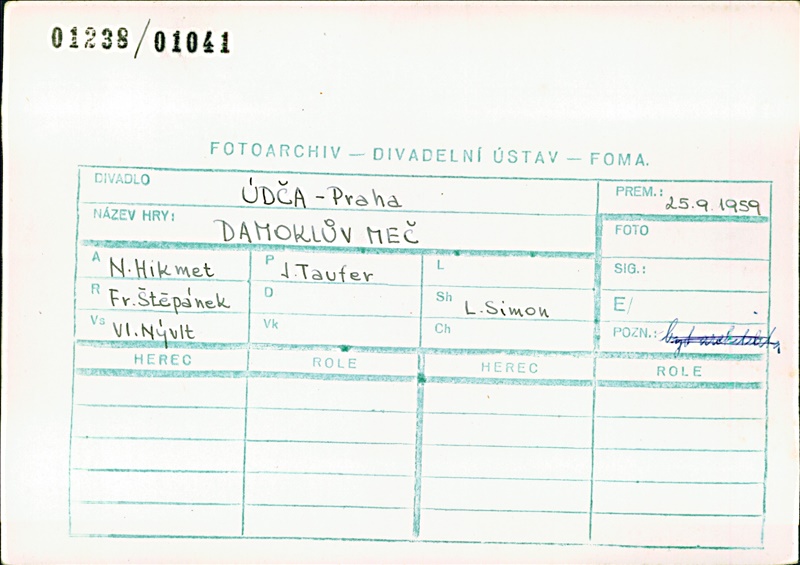 01238/01041
FOTOARCHIV — DIVADELNÍ ÚSTAV — FOMA.
DIVADLO ÚDČA - Praha
PREM.: 25.9.1959
NÁZEV HRY: DAMOKLŮV MEČ
FOTO
A N. Hikmet P J. Taufer L
SIG.:
R Fr. Štěpánek D Sh L. Simon
E/
Vs Vl. Nývlt Vk Ch
POZN.:
HEREC ROLE HEREC ROLE